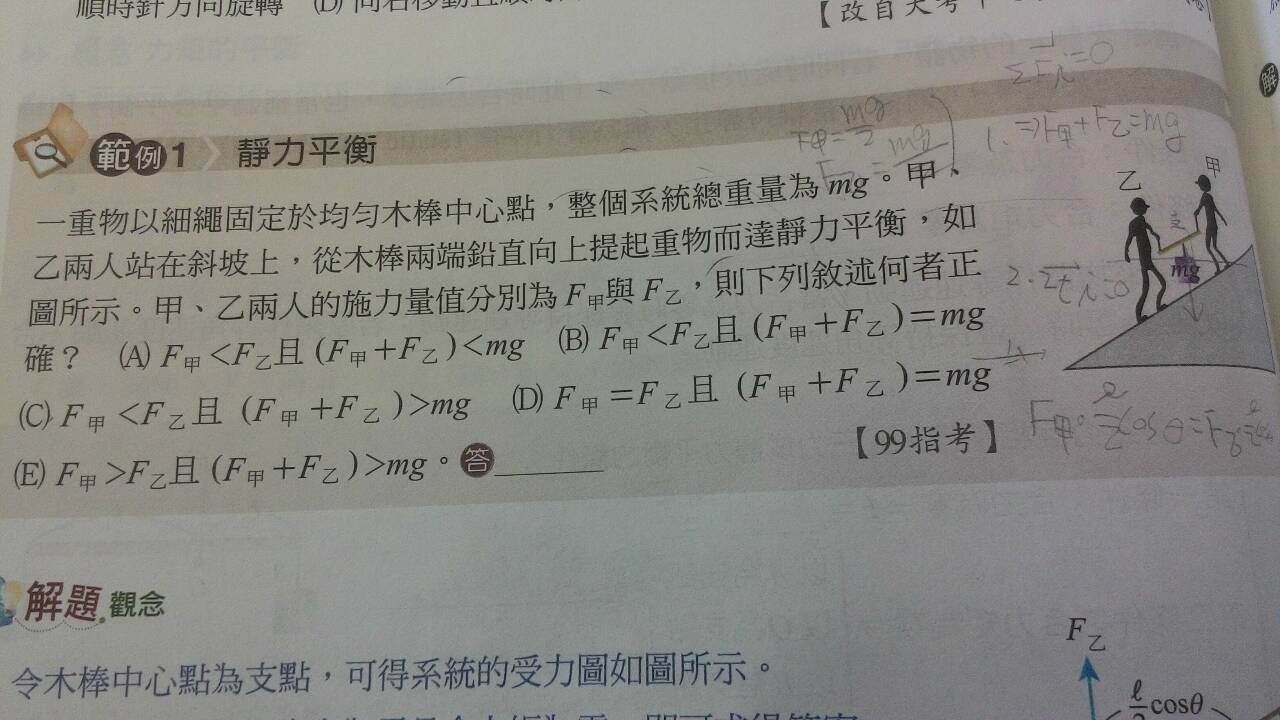 順時針方向旋轉 (D)
【改自大考
範例1 靜力平衡
一重物以細繩固定於均勻木棒中心點，整個系統總重量為 mg。甲、
乙兩人站在斜坡上，從木棒兩端鉛直向上提起重物而達靜力平衡，如
圖所示。甲、乙兩人的施力量值分別為 F甲與 F乙，則下列敘述何者正
確？ (A) F甲<F乙且 (F甲+F乙)<mg (B) F甲<F乙且 (F甲+F乙)=mg
(C) F甲<F乙且 (F甲+F乙)>mg (D) F甲=F乙且 (F甲+F乙)=mg
(E) F甲>F乙且 (F甲+F乙)>mg。答
【99指考】
F甲=mg/2
ΣFi=0
1. ⇒F甲+F乙=mg
2. Στi=0
乙
甲
支
mg
解
解題觀念
令木棒中心點為支點，可得系統的受力圖如圖所示。
F乙
ℓ/2 cosθ